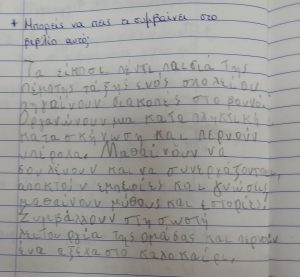 + Μπορείς να πεις τι συμβαίνει στο
βιβλίο αυτό;
Τα είκοσι πέντε παιδιά της
πέμπτης τάξης ενός σχολείου
πηγαίνουν διακοπές στο βουνό.
Οργανώνουν μια καταπληκτική
κατασκήνωση και περνούν
υπέροχα. Μαθαίνουν να
δουλεύουν και να συνεργάζονται,
αποκτούν εμπειρίες και γνώσεις
μαθαίνουν μύθους και ιστορίες.
Συμβάλλουν στη σωστή
λειτουργία της ομάδας και περνούν
ένα αξέχαστο καλοκαίρι.